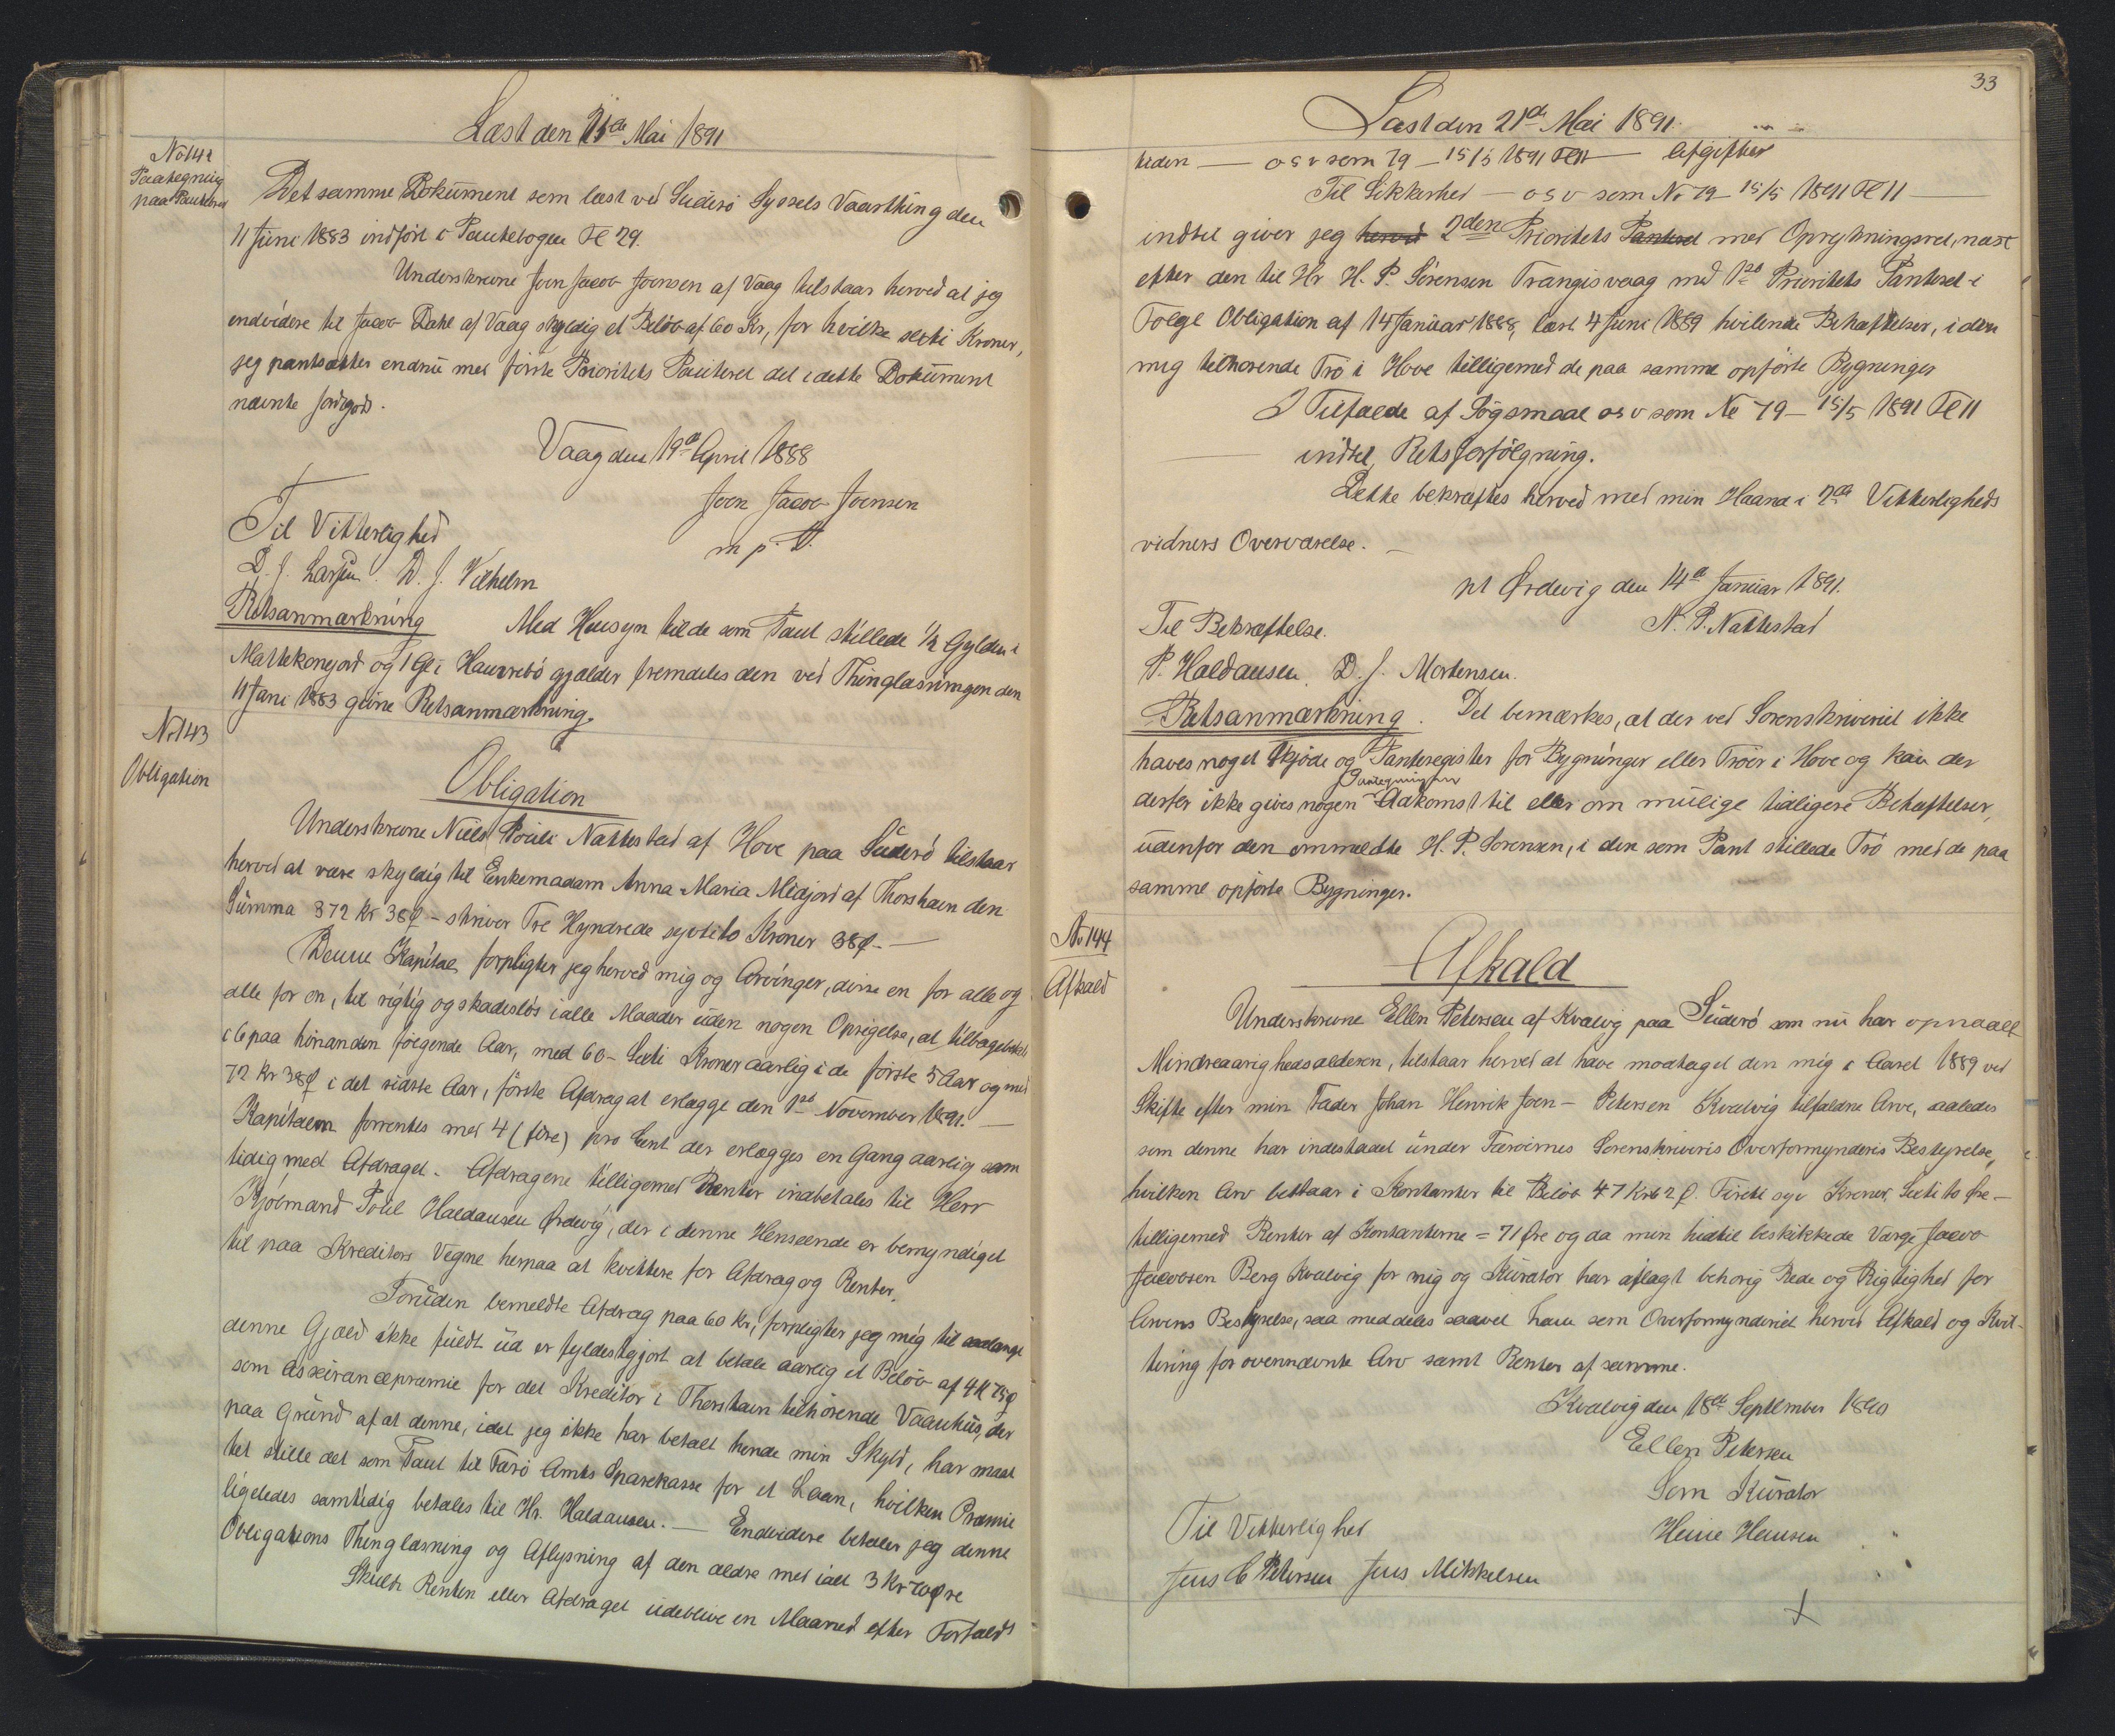 Læst den 21de Mai 1891
No 142
Paategning
paa Pantebrev
Det samme Dokument som læst ved Suderö Syssels Vaarthing den
11 Juni 1883 indført i Pantebogen Fl 29.
Underskrevne Joen Jacob Joensen af Vaag tilstaar herved at jeg
endvidere til Jacob Dahl af Vaag skyldig et Beløb af 60 Kr, for hvilke sexti Kroner,
jeg pantsætter endnu med første Prioritets Panteret det i dette Dokument
nævnte Jordgods.
Vaag den 19de April 1888
Joen Jacob Joensen
m. p. S.
Til Vitterlighed
D. J. Larsen. D. J. Vilhelm
Retsanmærkning Med Hensyn til de som Pant stillede 1/2 Gylden i
Mattekongjord og 1 Gl i Hauvrebö gjælder fremdeles den ved Thinglæsningen den
11 Juni 1883 givne Retsanmærkning.
No 143
Obligation
Obligation
Underskrevne Niels Pouli Nattestad af Hove paa Suderö tilstaar
herved at være skyldig til Enkemadam Anna Maria Midjord af Thorshavn den
Summa 372 Kr 38 Ø – skriver Tre Hyndrede syvtito Kroner 38 Ø –
Denne Kapital forpligter jeg herved mig og Arvinger, disse en for alle og
alle for en, til rigtig og skadesløs i alle Maader uden nogen Opsigelse, at tilbagebetale
i 6 paa hinanden følgende Aar, med 60 – Sexti Kroner aarlig i de første 5 Aar og med
72 Kr 38 Ø i det sidste Aar, første Afdrag at erlægge den 1ste November 1891. –
Kapitalen forrentes med 4 (fire) pro Cent der erlægges en Gang aarlig sam
tidig med Afdraget. Afdragene tilligemed Renter indbetales til Herr
Kjöbmand Poul Haldansen Ördevig, der i denne Henseende er bemyndiget
til paa Kreditors Vegne herpaa at kvittere for Afdrag og Renter.
Foruden bemeldte Afdrag paa 60 Kr, forpligter jeg mig til saalænge
denne Gjæld ikke fuldt ud er fyldestgjort at betale aarlig et Beløb af 4 K 75 Ø
som Assurancepræmie for det Kreditor i Thorshavn tilhørende Vaanhus, der
paa Grund af at denne, idet jeg ikke har betalt hende min Skyld, har maat
tet stille det som Pant til Færö Amts Sparekasse for et Laan, hvilken Præmie
ligeledes samtidig betales til Hr. Haldansen. – Endvidere betaler jeg denne
Obligations Thinglæsning og Aflysning af den ældre med ialt 3 Kr 20 Øre
Skulde Renten eller Afdraget udeblive en Maaned efter Forfalds
33
Læst den 21de Mai 1891.
tiden — o s v som 79 – 15/5 1891 Fl 11 — Afgifter
Til Sikkerhed — o s v som No 79 – 15/5 1891 Fl 11 —
indtil giver jeg herved 2den Prioritets Panteret med Oprykningsret, næst
efter den til Hr H. P. Sörensen Trangisvaag med 1ste Prioritets Panteret i
Følge Obligation af 14 Januar 1888, læst 4 Juni 1889 hvilende Behæftelser, i den
mig tilhorende Trö i Hove tilligemed de paa samme opførte Bygninger
I Tilfælde af Søgsmaal o s v som No 79 – 15/5 1891 Fl 11
— indtil, Retsforfølgning.
Dette bekræftes herved med min Haand i 2de Vitterligheds
vidners Overværelse. –
pt Ördevig den 14de Januar 1891.
N. P. Nattestad
Til Bekræftelse.
P. Haldansen. D. J. Mortensen.
Retsanmærkning. Det bemærkes, at der ved Sorenskriveriet ikke
haves noget Skjøde og Panteregister for Bygninger eller Tröer i Hove og kan der
derfor ikke gives nogen Adkomst til eller om mulige tidligere Behæftelser,
udenfor den ommeldte H. P. Sorensen, i den som Pant stillede Trö med de paa
samme opførte Bygninger.
No 144
Afkald
Afkald
Underskrevne Ellen Petersen af Kvalvig paa Suderö som nu har opnaaet
Mindreaarighedsalderen, tilstaar herved at have modtaget den mig i Aaret 1889 ved
Skifte efter min Fader Johan Henrik Joen – Petersen Kvalvig tilfaldne Arv, saaledes
som denne har indestaaet under Færøernes Sorenskriveris Overformynderis Bestyrelse,
hvilken Arv bestaar i Kontanter til Beløb 47 Kr 62 Ø. Firti syv Kroner, Sexti to Øre –
tilligemed Renter af Kontanterne = 71 Øre og da min hidtil beskikkede Værge Jacob
Jacobsen Berg Kvalvig for mig og Kurator har aflagt behørig Rede og Rigtighed for
Arvens Bestyrelse, saa meddeles saavel ham som Overformynderiet herved Afkald og Kvit-
tering for ovennævnte Arv samt Renter af samme.
Kvalvig den 18de September 1890
Ellen Petersen
Som Kurator
Heine Hansen
Til Vitterlighed
Jens C Petersen Jens Mikkelsen